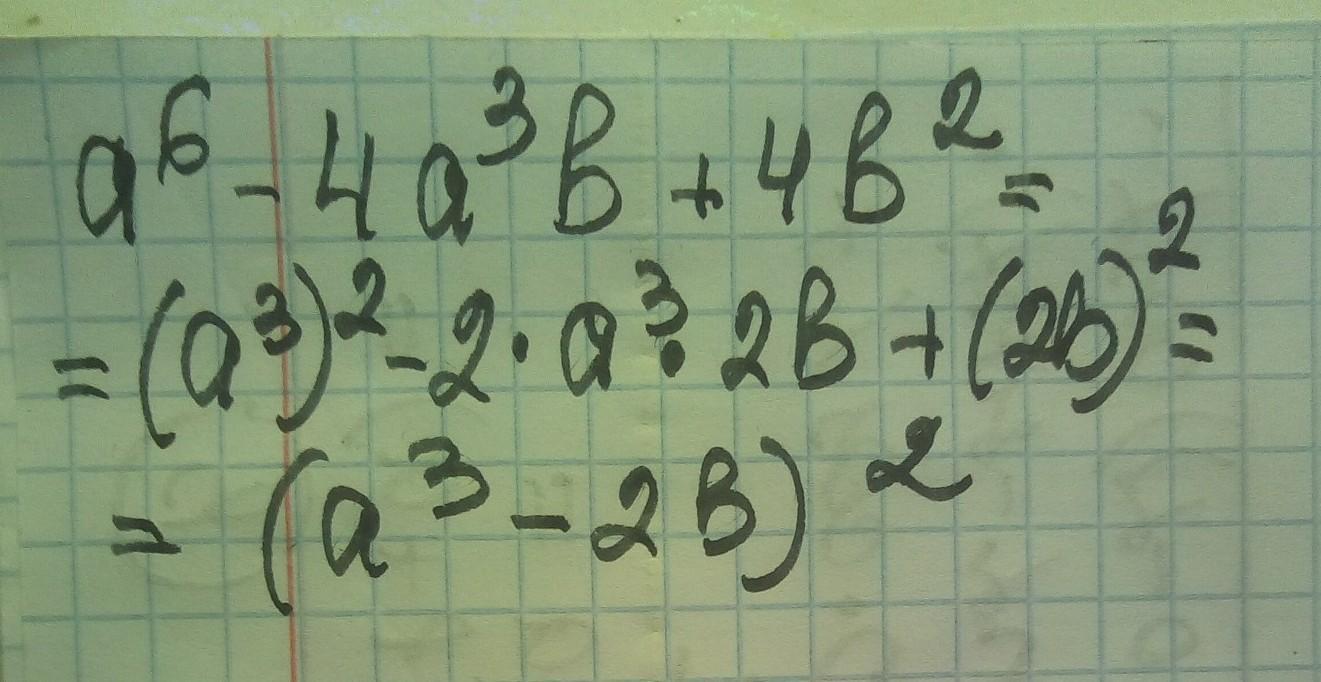 a⁶ - 4a³b + 4b² =
= (a³)² - 2 · a³ · 2b + (2b)² =
= (a³ - 2b)²